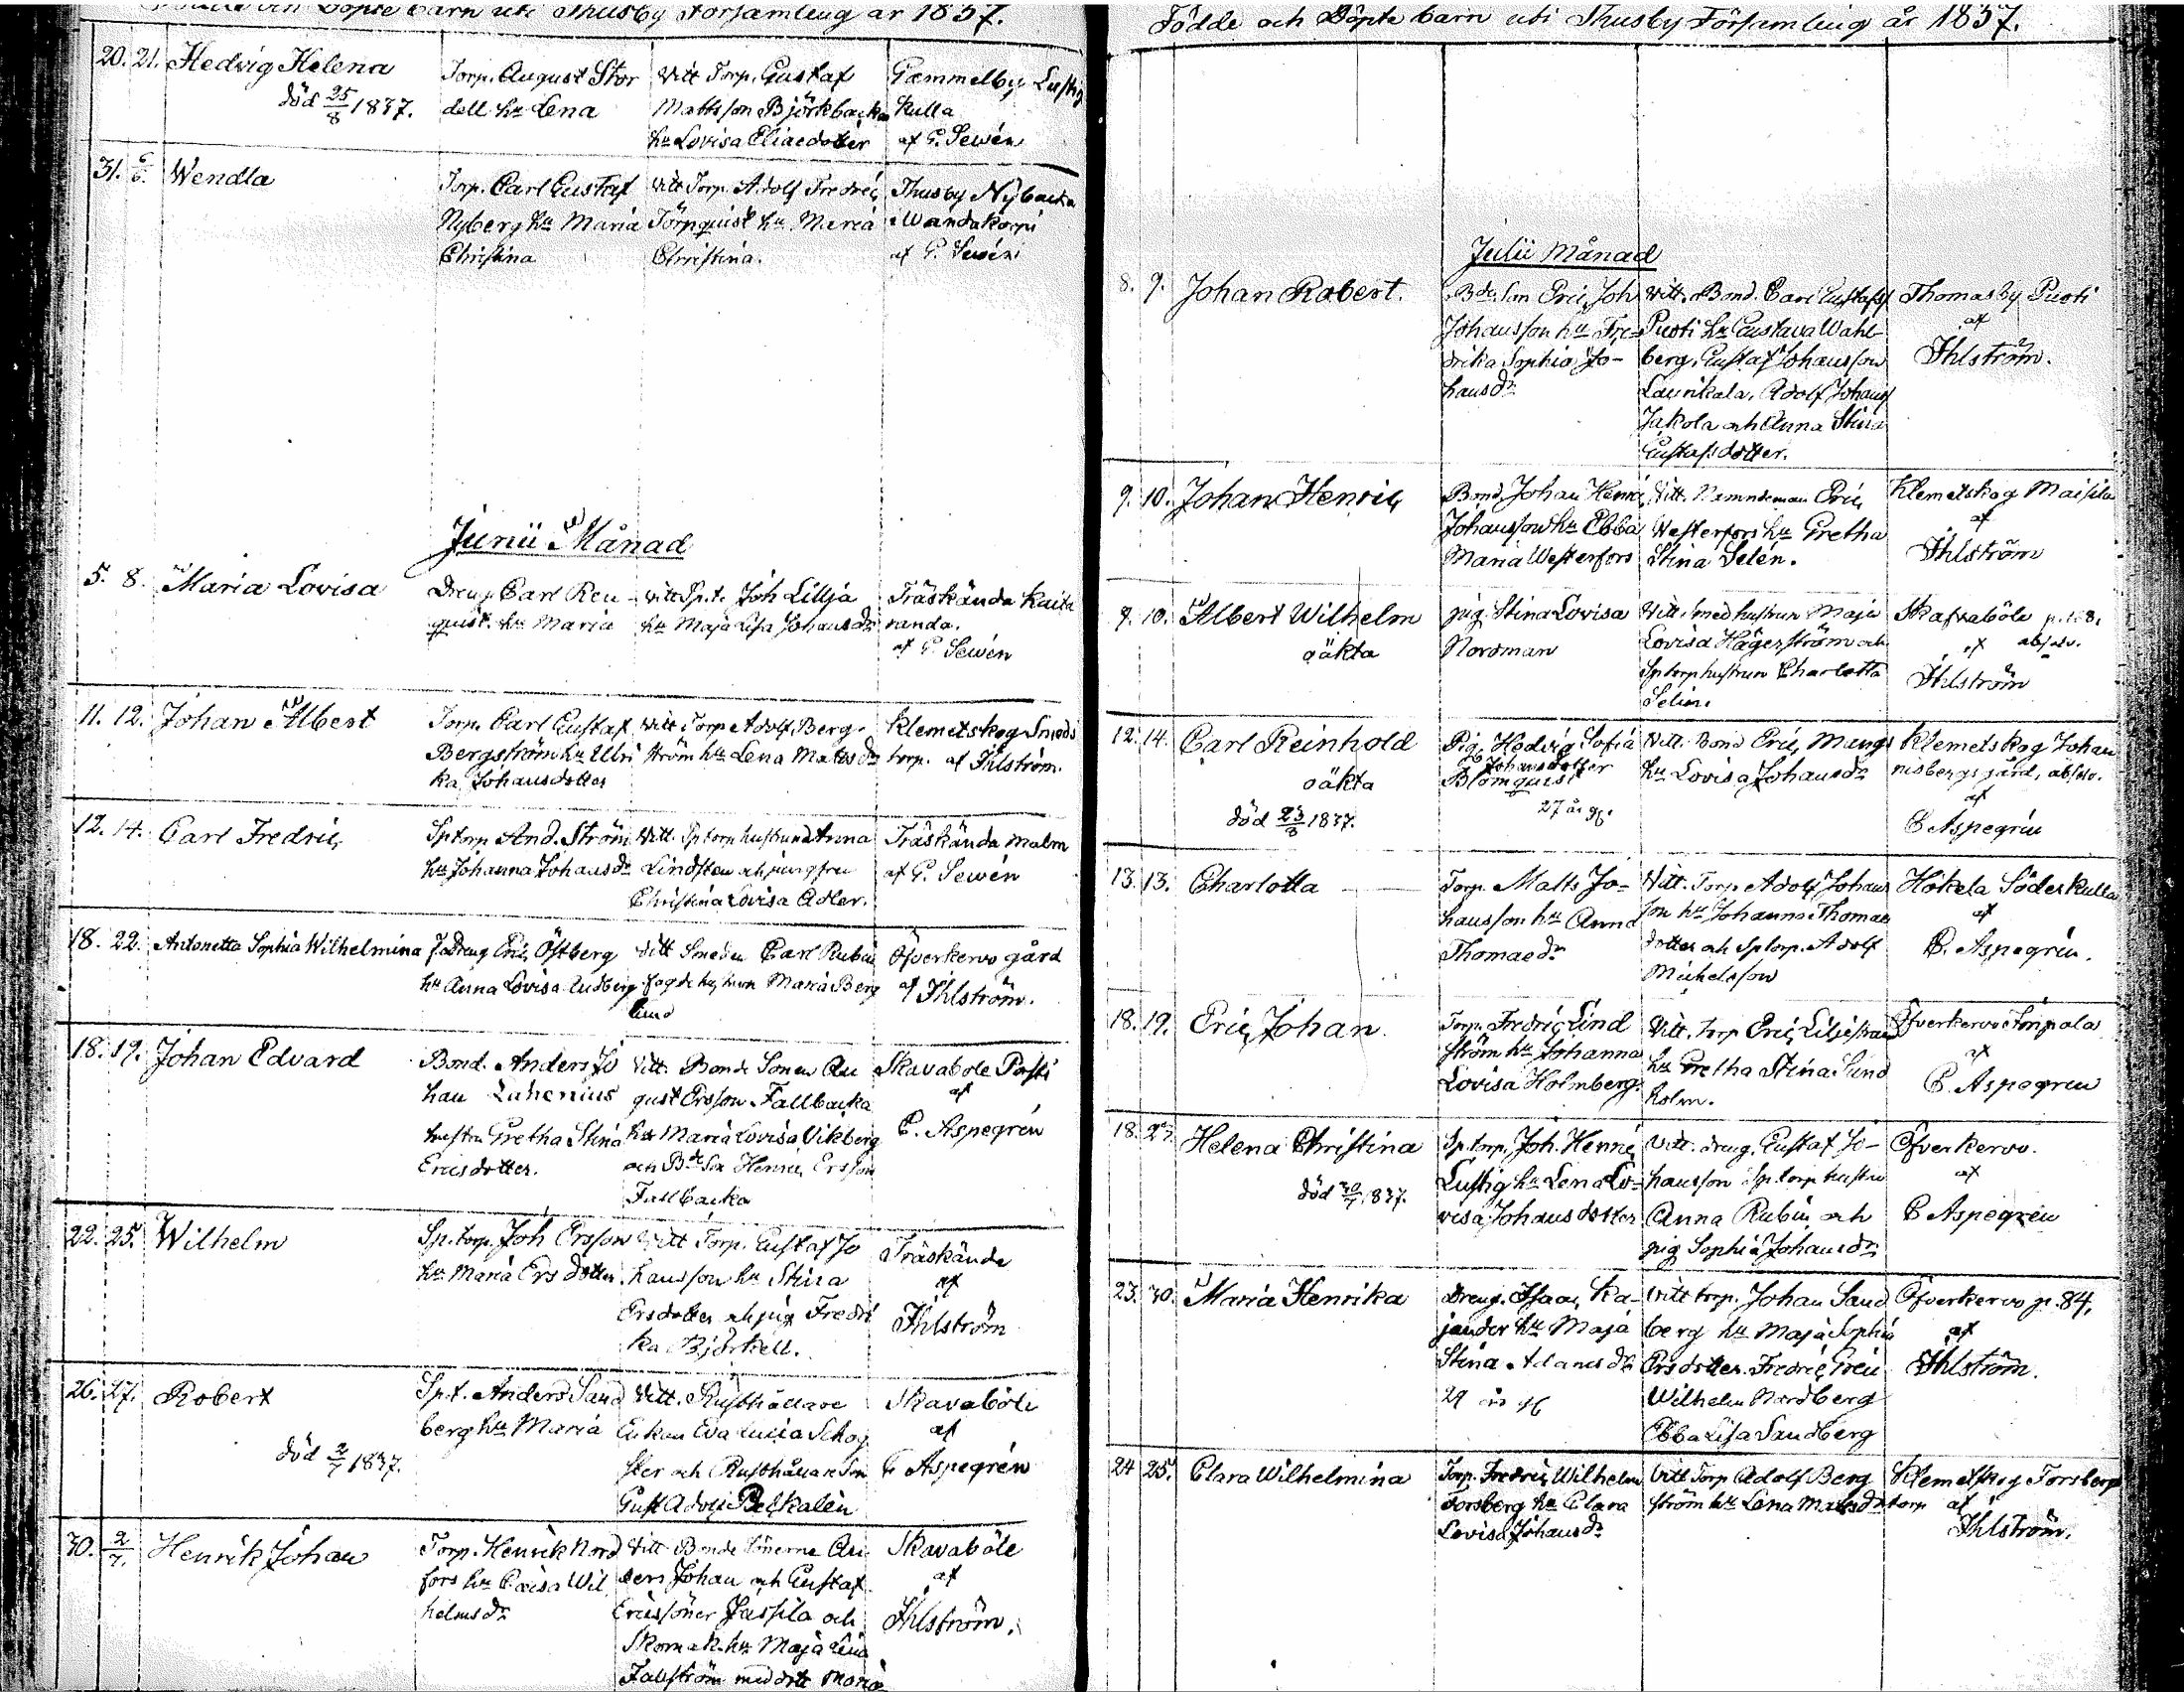 Födde och Döpte barn uti Thusby Församling år 1837.
20. 21. Hedvig Helena
död 25/8 1837.
Torp. August Stor
dell hu Lena
Vitt Torp. Gustaf
Mattsson Björkbacka
hu Lovisa Eliaedotter
Gammelby Lustig
kulla
af G. Sewén
31. Wendla
Torp. Carl Gustaf
Nyberg hu Maria
Christina
Vitt Torp. Adolf Fredric
Törnquist hu Maria
Christina.
Thusby Nybacka
Wandakorpi
af G. Sewén
Junii Månad
5. 8. Maria Lovisa
Dreng Carl Ren
quist hu Maria
Vitt Sp.t. Joh Lillja
hu Maja Lisa Johansdr
Träskända Kaita
randa.
af G. Sewén
11. 12. Johan Albert
Torp. Carl Gustaf
Bergström hu Ulri
ka Johansdotter
Vitt Torp Adolf Berg
ström hu Lena Matsdr
Klemetskog Smeds
torp. af Ihlström.
12. 14. Carl Fredric
Sptorp And. Ström
hu Johanna Johansdr
Vitt. Sptorp hustrun Anna
Lindsten och jungfru
Christina Lovisa Adler.
Träskända malm
af G. Sewén
18. 22. Antonetta Sophia Wilhelmina
Dreng Eric Östberg
hu Anna Lovisa Lindberg
Vitt Smeden Carl Rubin
Maria Berg
lund
Öfverkervo gård
af Ihlström.
18. 19. Johan Edvard
Bond. Anders Jo
han Luhenius
hustru Gretha Stina
Ericsdotter.
Vitt. Bonde Sonen Au
gust Ersson Fallbacka
hu Maria Lovisa Vikberg
och Bde Son Henric Ersson
Fallbacka
Skavaböle Pasti
af
C. Aspegrén
22. 25. Wilhelm
Sp.torp. Joh Ersson
hu Maria Ersdotter.
Vitt Torp. Gustaf Jo
hansson hu Stina
Ersdotter och pig Fredri
ka Björkell.
Träskända
af
Ihlström
26. 27. Robert
död 2/7 1837.
Sp.t. Anders Sand
berg hu Maria
Vitt. Rusthållare
Enkan Eva Luisa Schog
ster och Rusthållare Son
Gust Adolf Belkalén
Skavaböle
af
C Aspegrén
30. 2/7. Henrik Johan
Torp. Henrik Nord
fors hu Caisa Wil
helmsdr
Vitt Bonde Sönerne An
ders Johan och Gustaf
Ericssöner Jussila och
Skomak. hu Maja Lena
Fallström med dott Maria
Skavaböle
af
Ihlström.
Födde och Döpte barn uti Thusby Församling år 1837.
Julii Månad
8. 9. Johan Robert.
Bde. Son Eric Joh
Johansson hu Fre-
drika Sophia Jo-
hansdr
Vitt. Bond. Carl Gustafs
Puoti hu Gustava Wahl-
berg, Gustaf Johansson
Laurikala, Adolf Johans
Jakola och Anna Stina
Gustafsdotter.
Thomasby Puoti
af
Ihlström.
9. 10. Johan Henric
Bond Johan Henric
Johansson hu Ebba
Maria Westerfors
Vitt. Nämndeman Eric
Westerfors hu Gretha
Stina Selén.
Klemetskog Maisila
af
Ihlström
9. 10. Albert Wilhelm
oäkta
pig. Stina Lovisa
Nordman
Vitt. Smed hustrun Maja
Lovisa Hägerström och
Sptorp hustrun Charlotta
Selin.
Skafvaböle p. 168.
af absolv.
Ihlström
12. 14. Carl Reinhold
oäkta
död 23/8 1837.
Pig. Hedvig Sofia
Johansdotter
Blomquist
27 år gl.
Vitt. Bond Eric Mangs
hu Lovisa Johansdr
Klemetskog Johan
nisbergs gård, absolv.
af
C Aspegrén
13. 13. Charlotta
Torp. Matts Jo-
hansson hu Anna
Thomaedr
Vitt. Torp Adolf Johans
son hu Johanna Thomae
dotter och Sptorp. Adolf
Michelsson
Hökela Söderkulla
af
C. Aspegrén.
18. 19. Eric Johan
Torp. Fredric Lind
ström hu Johanna
Lovisa Holmberg.
Vitt. torp Eric Liljestrand
hu Gretha Stina Lind
holm.
Öfverkervo Tinpala
af
C. Aspegren
18. 23. Helena Christina
död 30/7 1837.
Sp.torp. Joh. Henric
Lustig hu Lena Lo-
visa Johansdotter
Vitt. dreng. Gustaf Jo-
hansson Sp.torp hustru
Anna Rubin och
pig Sophia Johansdr
Öfverkervo.
af
C Aspegrén
23. 30. Maria Henrika
Dreng. Isaac Ka-
jander hu Maja
Stina Adamsdr
29 år gl
Vitt torp. Johan Sand
berg hu Maja Sophia
Ersdotter. Fredric Grén
Wilhelm Nordberg
Ebba Lisa Sandberg
Öfverkervo p. 84,
af
Ihlström.
24 25. Clara Wilhelmina
Torp. Fredric Wilhelm
Forsberg hu Clara
Lovisa Johansdr
Vitt Torp Adolf Berg
ström hu Lena Matsdr
Klemetskog Forsberg
torp af
Ihlström.